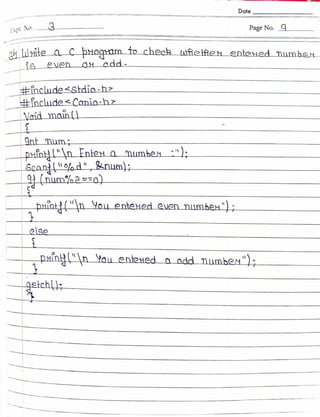 Date
Expt. No. 3
Page No. 9
Write a C program to check whether entered number
is even or odd.
#include<stdio.h>
#include<conio.h>
Void main()
{
Int num;
printf("\n Enter a number :");
Scanf("%d", &num);
If (num%2==0)
{
printf("\n You entered even number");
}
else
{
printf("\n You entered a odd number");
}
getch();
}